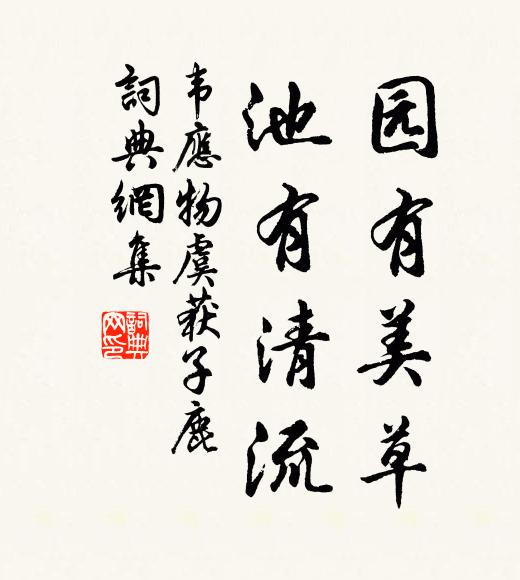 园有美草
池有清流
韦應物虞获子鹿
詞典網集
詞典网印